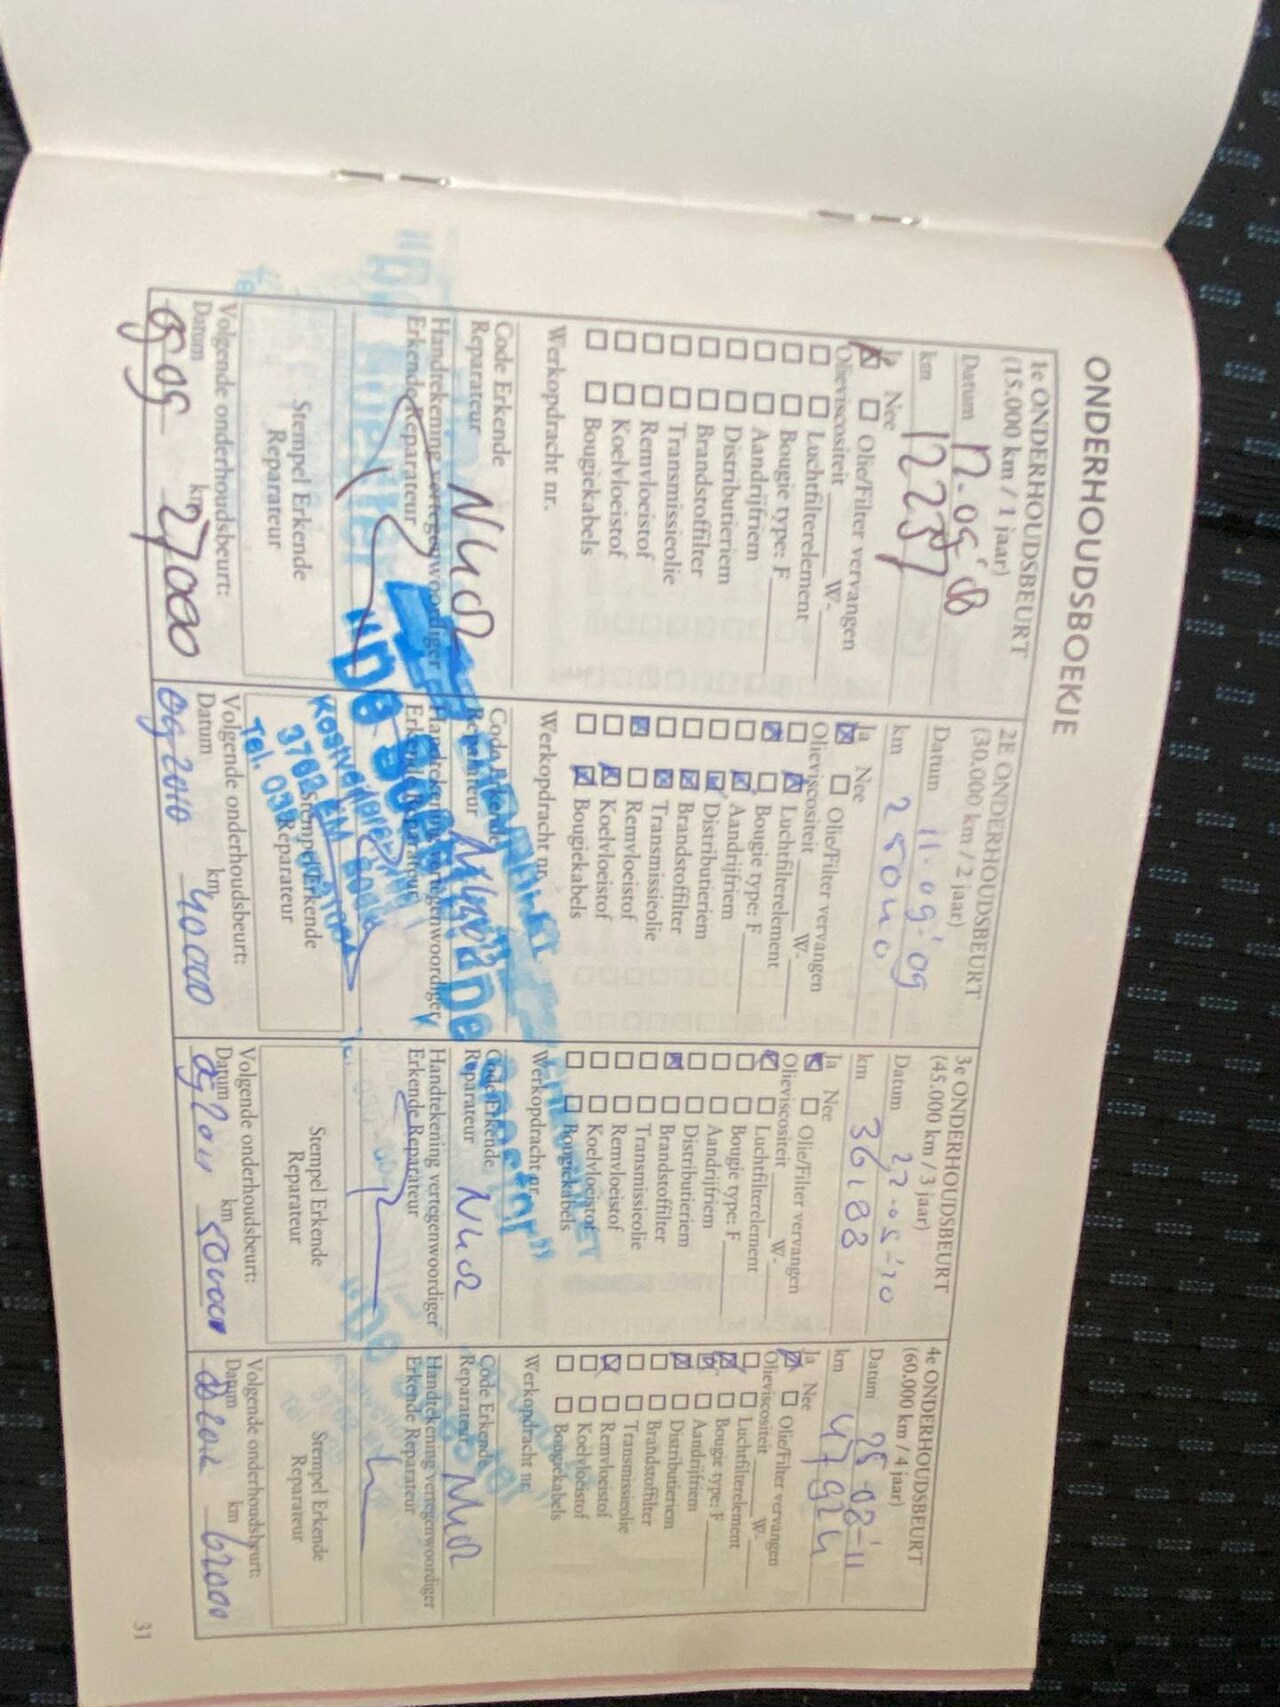 ONDERHOUDSBOEKJE
1e ONDERHOUDSBEURT
(15.000 km / 1 jaar)
Datum 12-09-'08
km 12237
Ja Nee
Olie/Filter vervangen
Olieviscositeit W-
Luchtfilterelement
Bougie type: F
Aandrijfriem
Distributieriem
Brandstoffilter
Transmissieolie
Remvloeistof
Koelvloeistof
Bougiekabels
Werkopdracht nr.
Code Erkende
Reparateur
Handtekening vertegenwoordiger
Erkende Reparateur
Stempel Erkende
Reparateur
Volgende onderhoudsbeurt:
Datum 09-09 km 27000
2E ONDERHOUDSBEURT
(30.000 km / 2 jaar)
Datum 11-09-'09
km 25040
Ja Nee
Olie/Filter vervangen
Olieviscositeit W-
Luchtfilterelement
Bougie type: F
Aandrijfriem
Distributieriem
Brandstoffilter
Transmissieolie
Remvloeistof
Koelvloeistof
Bougiekabels
Werkopdracht nr.
Code Erkende
Reparateur
Handtekening vertegenwoordiger
Erkende Reparateur
Stempel Erkende
Reparateur
Tel. 03
Volgende onderhoudsbeurt:
Datum 09 2010 km 40000
3e ONDERHOUDSBEURT
(45.000 km / 3 jaar)
Datum 27-05-'10
km 36188
Ja Nee
Olie/Filter vervangen
Olieviscositeit W-
Luchtfilterelement
Bougie type: F
Aandrijfriem
Distributieriem
Brandstoffilter
Transmissieolie
Remvloeistof
Koelvloeistof
Bougiekabels
Werkopdracht nr.
Code Erkende
Reparateur
Handtekening vertegenwoordiger
Erkende Reparateur
Stempel Erkende
Reparateur
Volgende onderhoudsbeurt:
Datum 09 2011 km 50000
4e ONDERHOUDSBEURT
(60.000 km / 4 jaar)
Datum 25-08-'11
km 47924
Ja Nee
Olie/Filter vervangen
Olieviscositeit W-
Luchtfilterelement
Bougie type: F
Aandrijfriem
Distributieriem
Brandstoffilter
Transmissieolie
Remvloeistof
Koelvloeistof
Bougiekabels
Werkopdracht nr.
Code Erkende
Reparateur
Handtekening vertegenwoordiger
Erkende Reparateur
Stempel Erkende
Reparateur
Volgende onderhoudsbeurt:
Datum 08 2012 km 62000
31